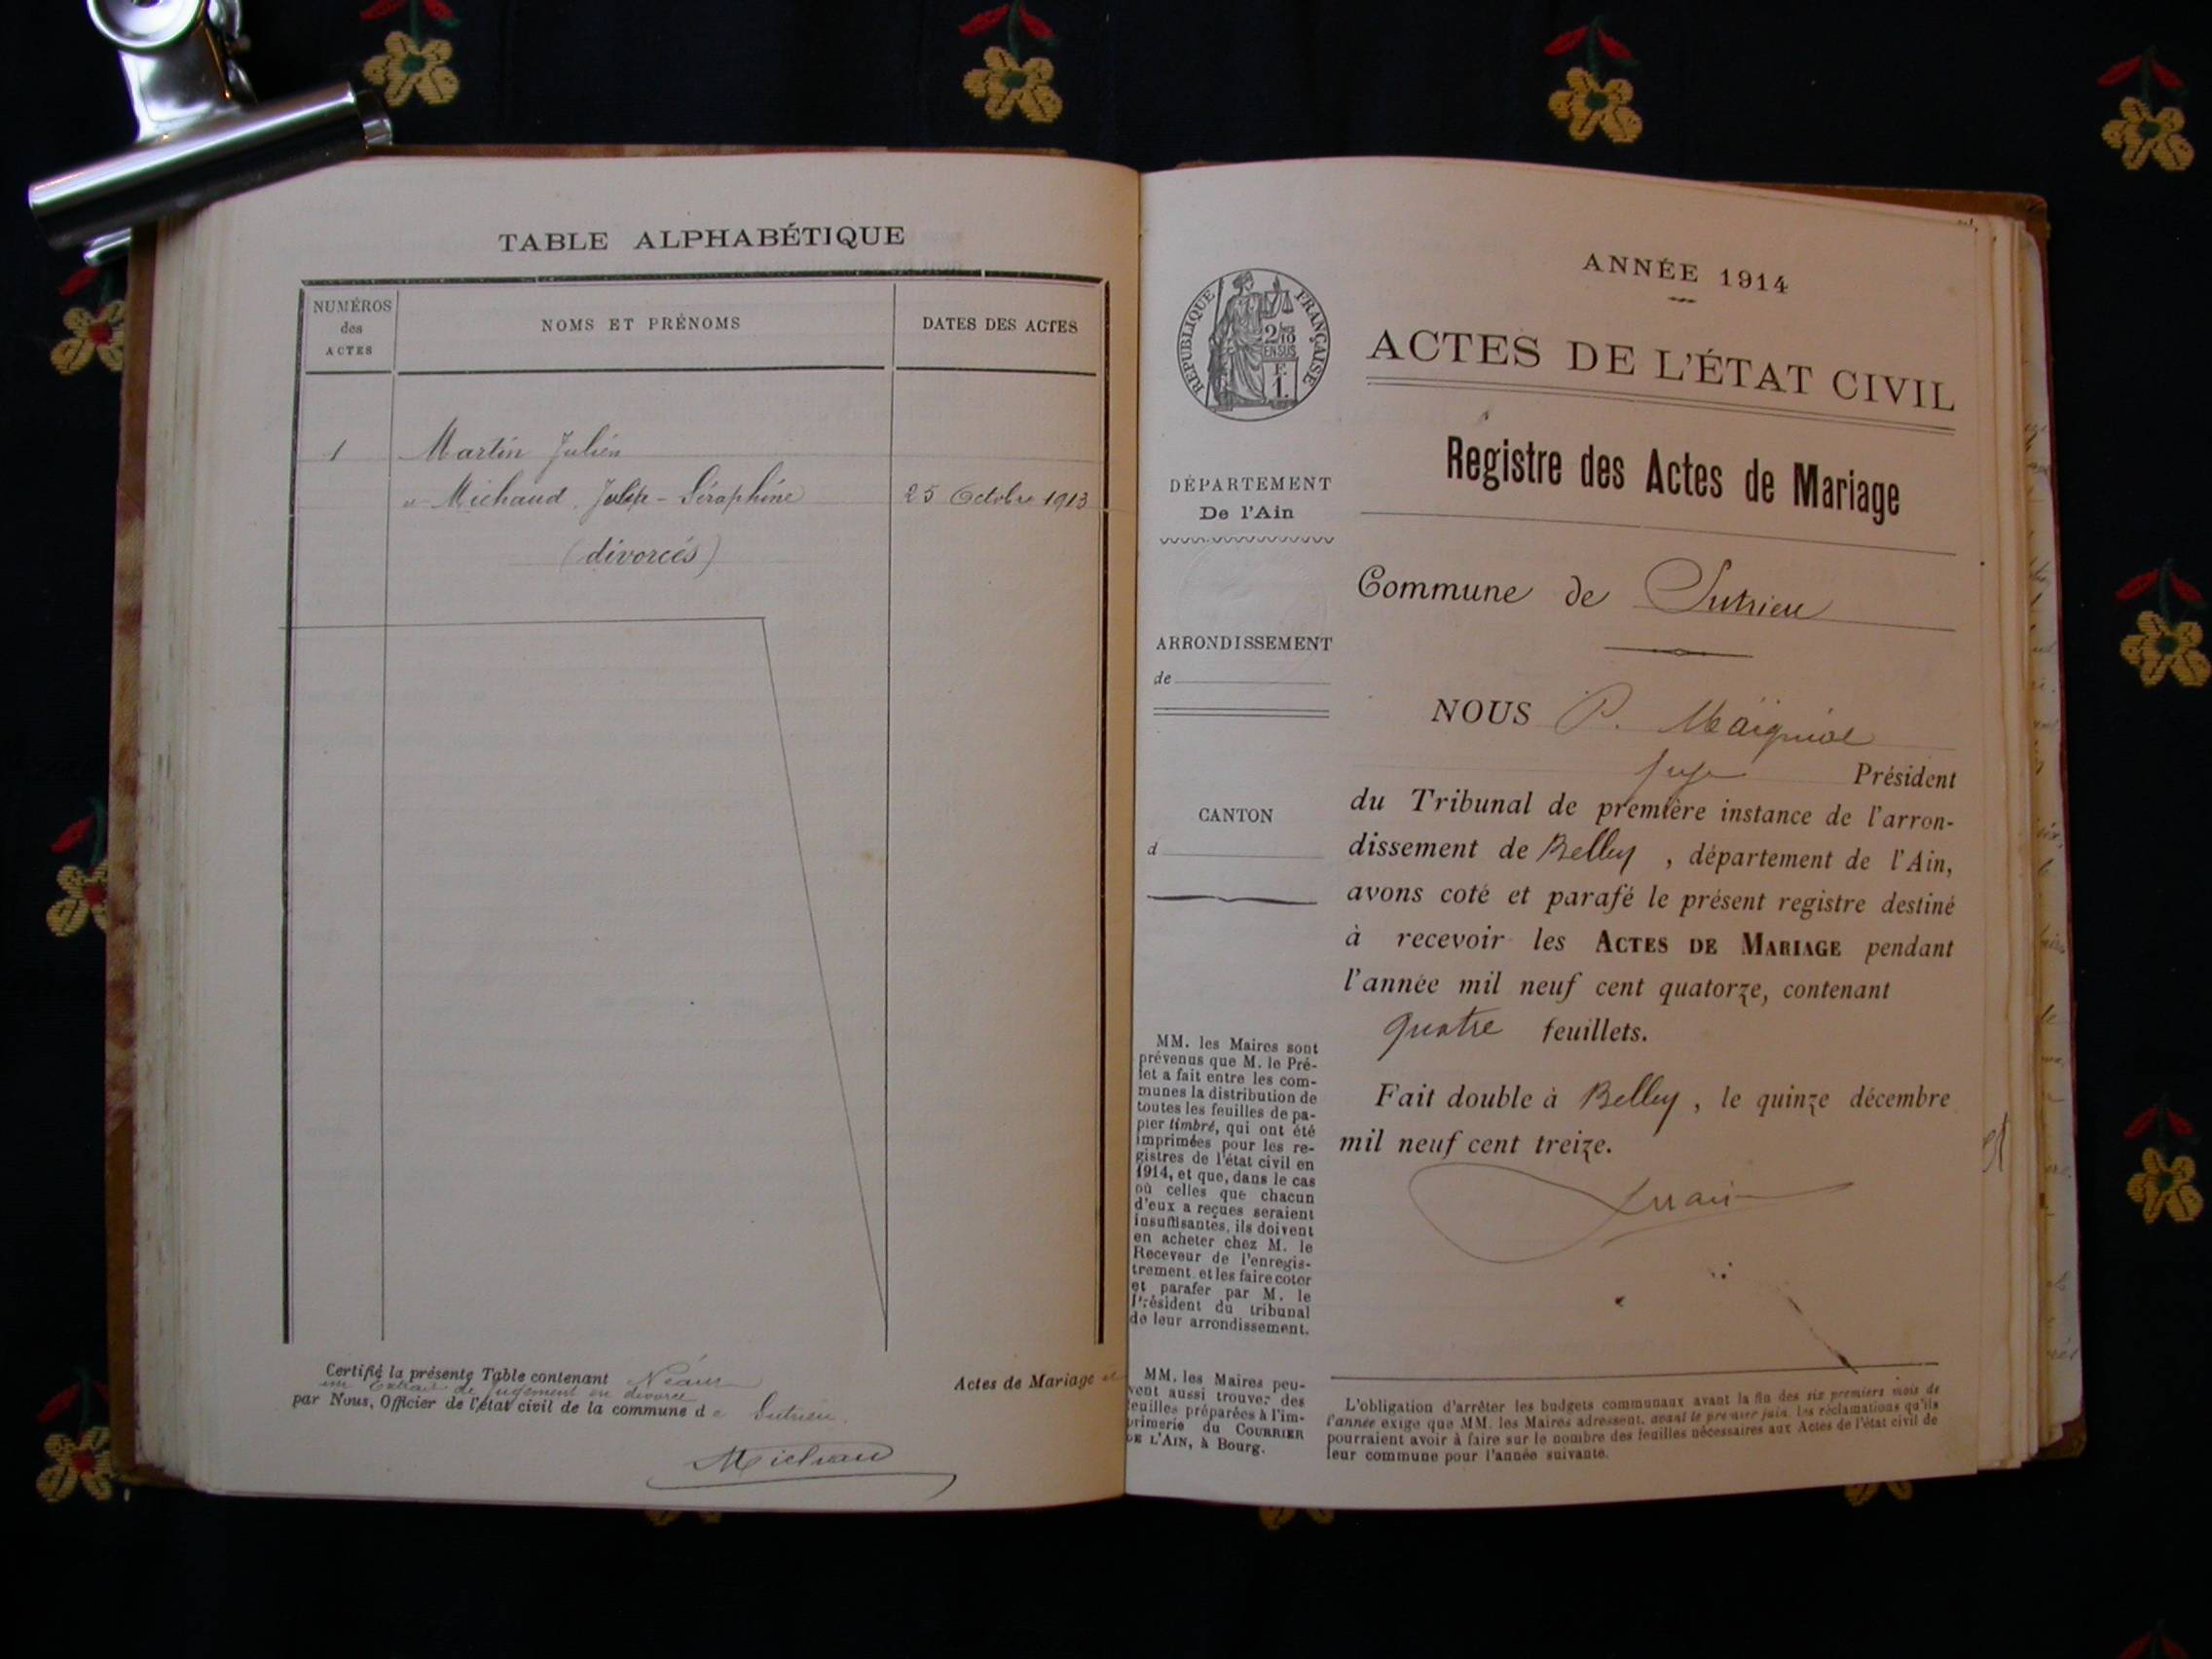 TABLE ALPHABÉTIQUE
NUMÉROS
des
ACTES
NOMS ET PRÉNOMS
DATES DES ACTES
1 Martin Julien
et Michaud Julie-Séraphine 25 Octobre 1913
(divorcés)
Certifié la présente Table contenant Néant Actes de Mariage et
un Extrait de jugement en divorce
par Nous, Officier de l'état civil de la commune de Sutrieu.
Michaud
RÉPUBLIQUE FRANÇAISE
2/10
EN SUS
F.
1.
DÉPARTEMENT
De l'Ain
ARRONDISSEMENT
de
CANTON
d
MM. les Maires sont
prévenus que M. le Pré-
fet a fait entre les com-
munes la distribution de
toutes les feuilles de pa-
pier timbré, qui ont été
imprimées pour les re-
gistres de l'état civil en
1914, et que, dans le cas
où celles que chacun
d'eux a reçues seraient
insuffisantes, ils doivent
en acheter chez M. le
Receveur de l'enregis-
trement et les faire coter
et parafer par M. le
Président du tribunal
de leur arrondissement.
MM. les Maires peu-
vent aussi trouver des
feuilles préparées à l'im-
primerie du COURRIER
DE L'AIN, à Bourg.
ANNÉE 1914
ACTES DE L'ÉTAT CIVIL
Registre des Actes de Mariage
Commune de Sutrieu
NOUS P. Maigniol
Juge Président
du Tribunal de première instance de l'arron-
dissement de Belley, département de l'Ain,
avons coté et parafé le présent registre destiné
à recevoir les ACTES DE MARIAGE pendant
l'année mil neuf cent quatorze, contenant
quatre feuillets.
Fait double à Belley, le quinze décembre
mil neuf cent treize.
L'obligation d'arrêter les budgets communaux avant la fin des six premiers mois de
l'année exige que MM. les Maires adressent, avant le premier juin, les réclamations qu'ils
pourraient avoir à faire sur le nombre des feuilles nécessaires aux Actes de l'état civil de
leur commune pour l'année suivante.